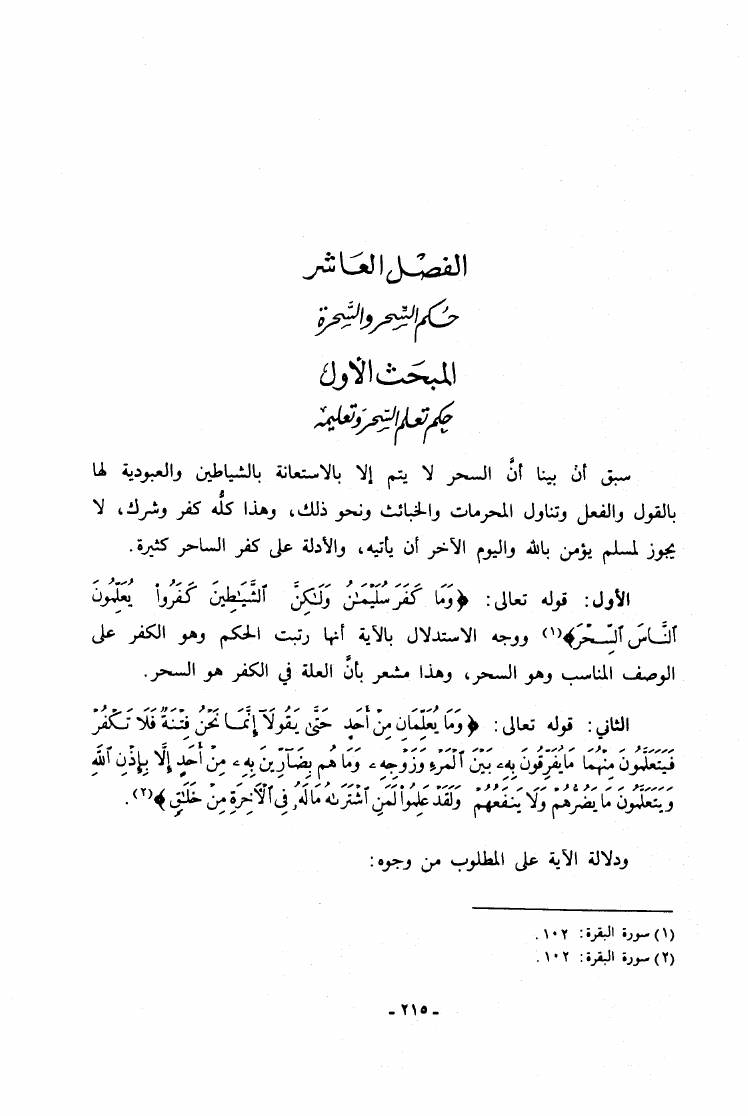 الفصل العاشر
حكم السِّحر والسَّحرة
المبحَث الأول
حكم تعلم السِّحر وتعليمه
سبق أن بينا أنَّ السحر لا يتم إلا بالاستعانة بالشياطين والعبودية لها
بالقول والفعل وتناول المحرمات والخبائث ونحو ذلك، وهذا كلُّه كفر وشرك، لا
يجوز لمسلم يؤمن بالله واليوم الآخر أن يأتيه، والأدلة على كفر الساحر كثيرة.
الأول: قوله تعالى: ﴿وَمَا كَفَرَ سُلَيْمَٰنُ وَلَٰكِنَّ ٱلشَّيَٰطِينَ كَفَرُوا۟ يُعَلِّمُونَ
ٱلنَّاسَ ٱلسِّحْرَ﴾(١) ووجه الاستدلال بالآية أنها رتبت الحكم وهو الكفر على
الوصف المناسب وهو السحر، وهذا مشعر بأنَّ العلة في الكفر هو السحر.
الثاني: قوله تعالى: ﴿وَمَا يُعَلِّمَانِ مِنْ أَحَدٍ حَتَّىٰ يَقُولَآ إِنَّمَا نَحْنُ فِتْنَةٌ فَلَا تَكْفُرْ
فَيَتَعَلَّمُونَ مِنْهُمَا مَا يُفَرِّقُونَ بِهِۦ بَيْنَ ٱلْمَرْءِ وَزَوْجِهِۦ وَمَا هُم بِضَآرِّينَ بِهِۦ مِنْ أَحَدٍ إِلَّا بِإِذْنِ ٱللَّهِ
وَيَتَعَلَّمُونَ مَا يَضُرُّهُمْ وَلَا يَنفَعُهُمْ وَلَقَدْ عَلِمُوا۟ لَمَنِ ٱشْتَرَىٰهُ مَا لَهُۥ فِى ٱلْآخِرَةِ مِنْ خَلَٰقٍ﴾(٢).
ودلالة الآية على المطلوب من وجوه:
(١) سورة البقرة: ١٠٢.
(٢) سورة البقرة: ١٠٢.
- ٢١٥ -